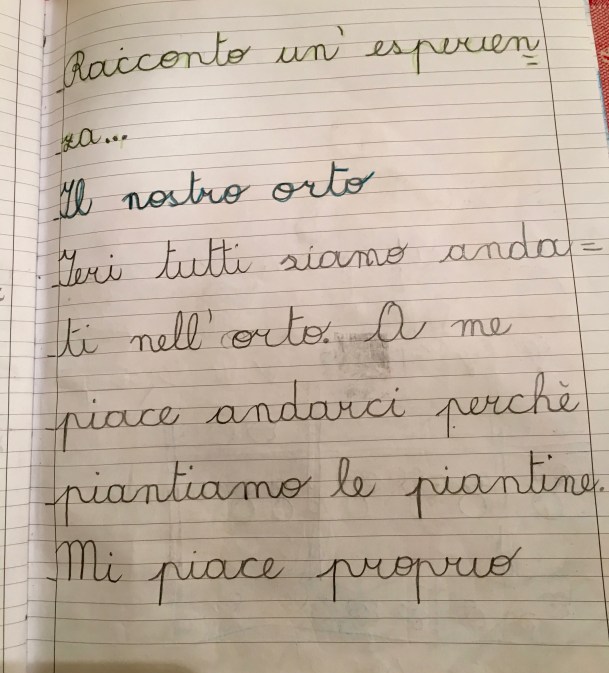 Racconto un' esperien=
za...
Il nostro orto
Ieri tutti siamo anda=
ti nell' orto. A me
piace andarci perchè
piantiamo le piantine.
Mi piace proprio